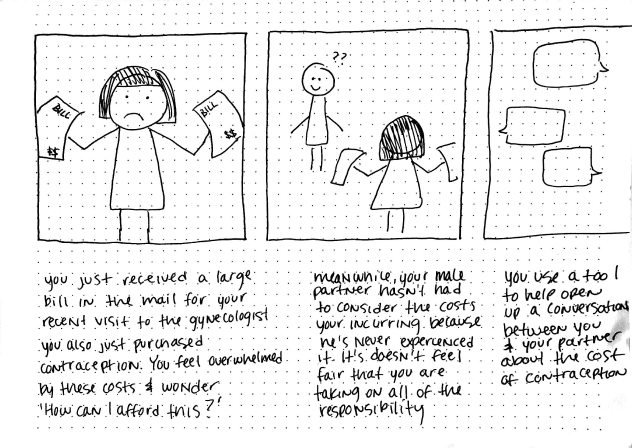 BILL
$$
BILL
$$
??
you just received a large
bill in the mail for your
recent visit to the gynecologist
you also just purchased
contraception. You feel overwhelmed
by these costs & wonder
'How can I afford this?'
meanwhile, your male
partner hasn't had
to consider the costs
your incurring because
he's never experienced
it. It's doesn't feel
fair that you are
taking on all of the
responsibility
you use a tool
to help open
up a conversation
between you
& your partner
about the cost
of contraception